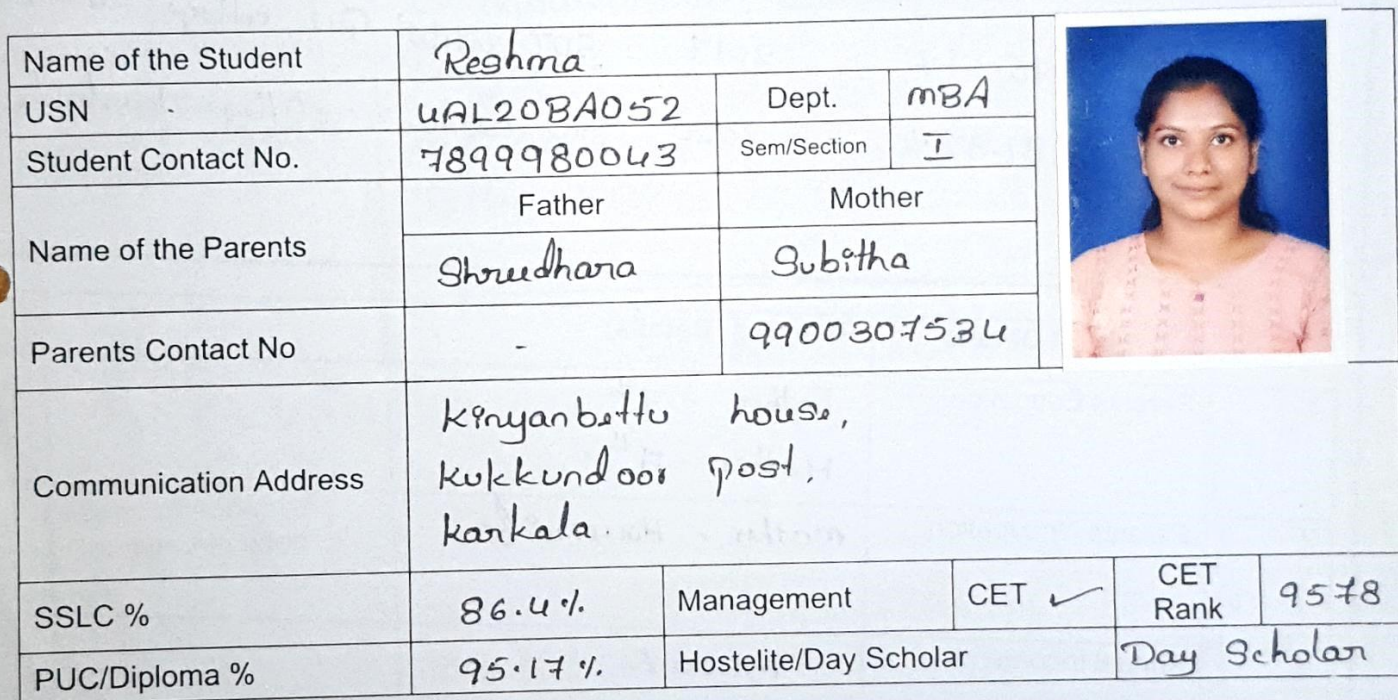 Name of the Student Reshma
USN 4AL20BA052 Dept. MBA
Student Contact No. 7899980043 Sem/Section I
Father Mother
Name of the Parents Shreedhara Subitha
Parents Contact No - 9900307534
Communication Address Kinyanbettu house,
Kukkundoor post,
Karkala
SSLC % 86.4% Management CET ✓ CET Rank 9578
PUC/Diploma % 95.17% Hostelite/Day Scholar Day Scholar